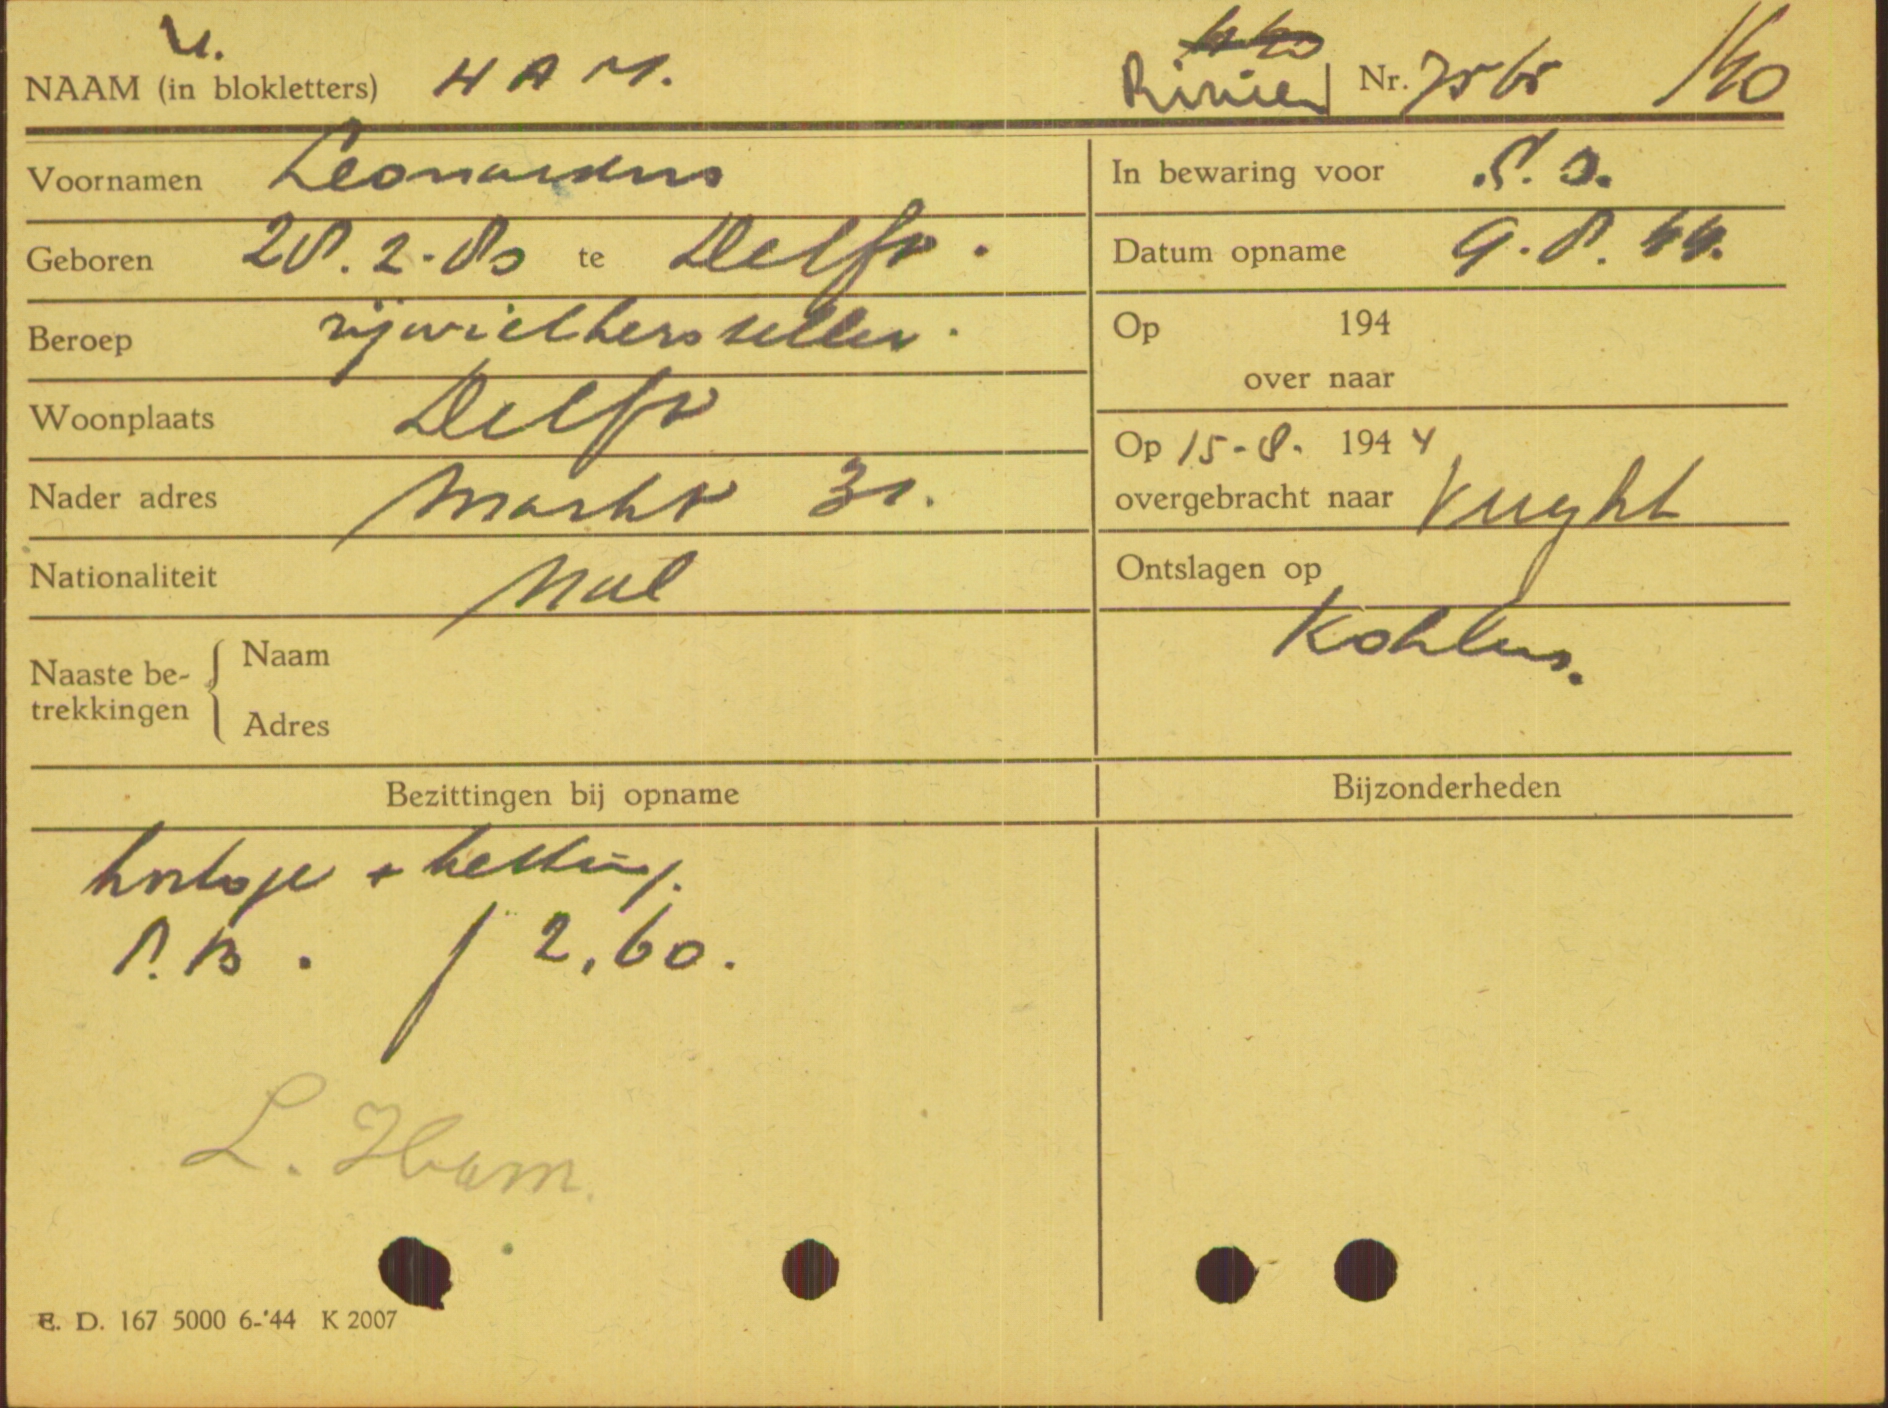 NAAM (in blokletters) HAM.
Nr. 7565 / 40
Voornamen Leonardus
In bewaring voor S.D.
Geboren 28.2.80 te Delft.
Datum opname 9.8.44.
Beroep rijwielhersteller.
Op 194
over naar
Woonplaats Delft
Op 15-8. 1944
overgebracht naar Vught
Nader adres Markt 31.
Nationaliteit Ned
Ontslagen op
Kohlen.
Naaste be-
trekkingen
Naam
Adres
Bezittingen bij opname
Bijzonderheden
horloge + ketting.
P.B. f 2,60.
L. Ham.
E. D. 167 5000 6-'44 K 2007